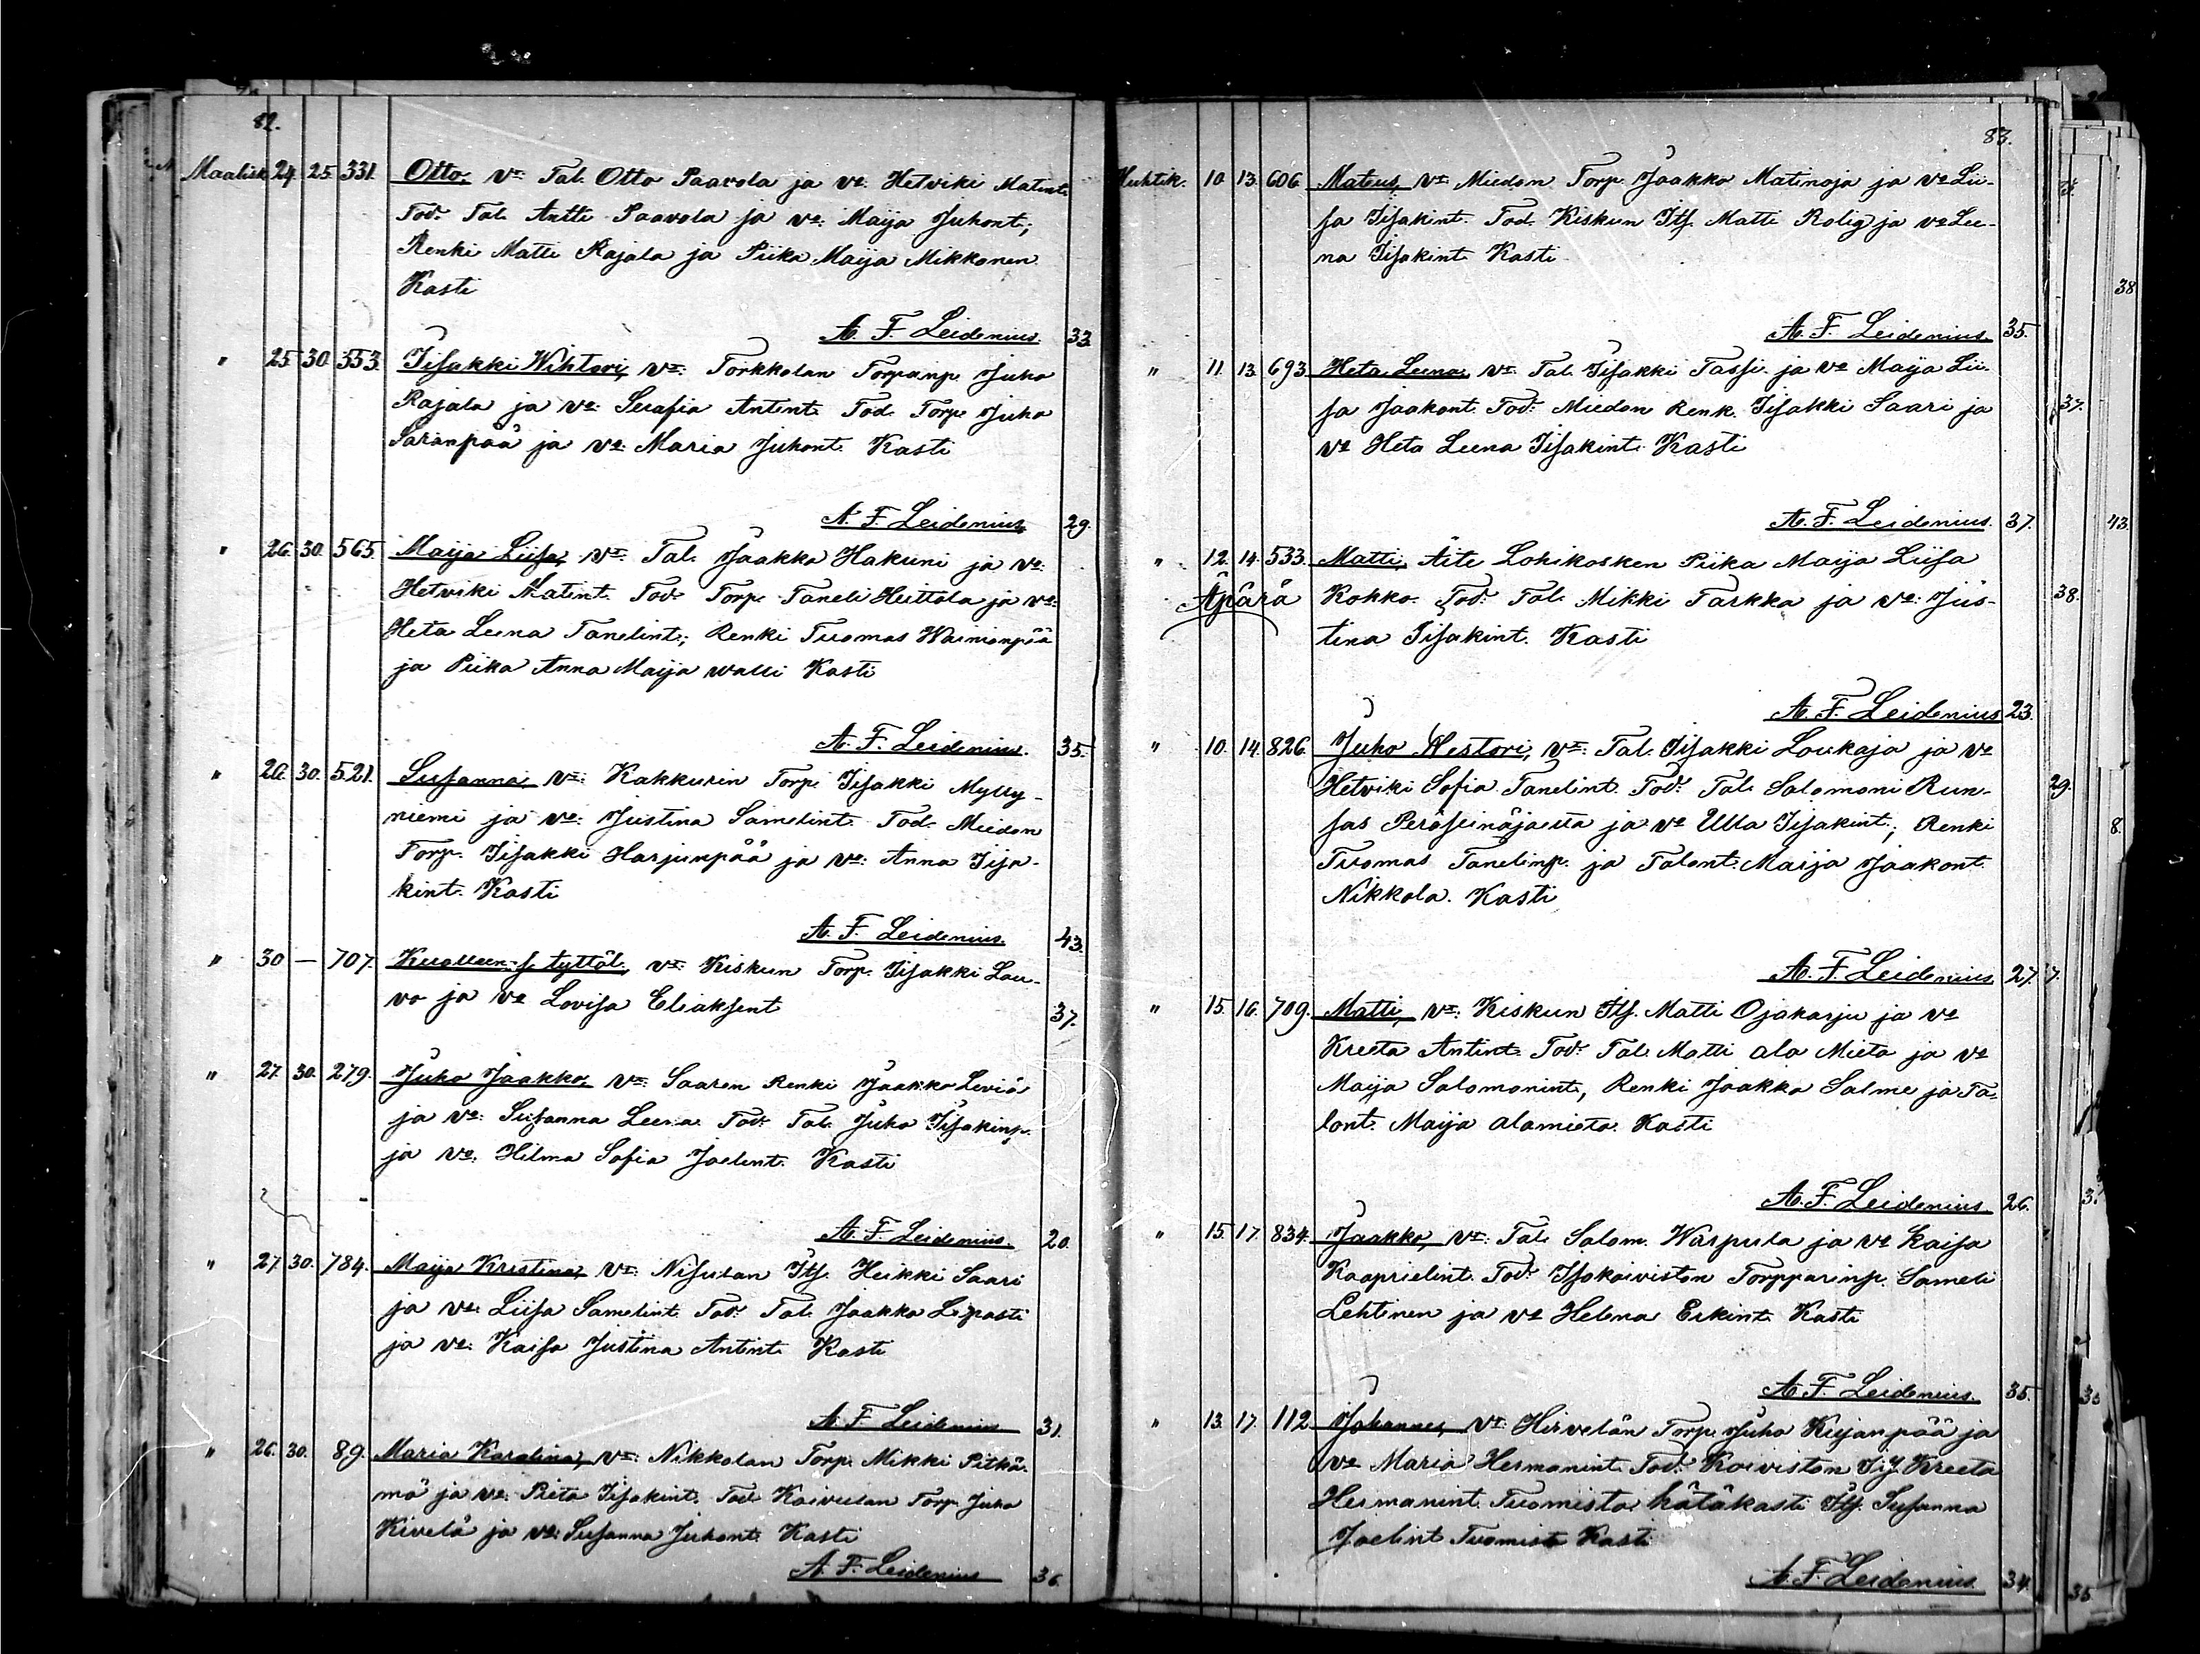 82.
Maalisk 24. 25. 331. Otto, v: Tal. Otto Paavola ja v: Hetviki Matint.
Tod. Tal. Antti Paavola ja v: Maija Juhont;
Renki Matti Rajala ja Piika Maija Mikkonen
Kasti
A. F. Leidenius. 33.
" 25 30 353. Iisakki Wihtori, v: Torkkolan Torpanp. Juho
Rajala ja v: Serafia Antint. Tod. Torp. Juho
Saranpää ja v: Maria Juhont. Kasti
A. F. Leidenius 29.
" 26. 30. 565. Maija Liisa, v: Tal. Jaakko Hakuni ja v:
Hetviki Matint. Tod. Torp. Taneli Heittola ja v:
Heta Leena Tanelint; Renki Tuomas Wainionpää
ja Piika Anna Maija Walli Kasti
A. F. Leidenius. 35.
" 26. 30. 521. Susanna, v: Kakkurin Torp. Iisakki Mylly-
niemi ja v: Justina Samelint. Tod. Miedon
Torp. Iisakki Harjunpää ja v: Anna Iisa-
kint. Kasti
A. F. Leidenius. 43.
" 30 — 707. Kuolleen s. tyttöl., v: Kiskun Torp. Iisakki Lou-
vo ja v: Lovisa Eliaksent 37.
" 27. 30. 279. Juho Jaakko, v: Saaren Renki Jaakko Leviö
ja v: Susanna Leena. Tod. Tal. Juho Iisakinp.
ja v: Hilma Sofia Joelint. Kasti
A. F. Leidenius. 20.
" 27. 30. 784. Maija Kristina, v: Nisulan Its. Heikki Saari
ja v: Liisa Samelint. Tod. Tal. Jaakko Lipasti
ja v: Kaisa Justina Antint. Kasti
A. F. Leidenius 31.
" 26. 30. 89. Maria Karolina, v: Nikkolan Torp. Mikki Pitkä-
mö ja v: Pieta Iisakint. Tod. Koivulan Torp. Juho
Kivelä ja v: Susanna Juhont. Kasti
A. F. Leidenius 36.
83.
Huhtik. 10. 13. 606. Mateus, v: Miedon Torp. Jaakko Matinoja ja v: Lii-
sa Iisakint. Tod. Kiskun Its. Matti Rolig ja v: Lee-
na Iisakint. Kasti
A. F. Leidenius. 35.
" 11. 13. 693. Heta Leena, v: Tal. Iisakki Tassi ja v: Maija Lii-
sa Jaakont. Tod: Miedon Renk. Iisakki Saari ja
v: Heta Leena Iisakint. Kasti
A. F. Leidenius. 37.
" 12. 14. 533. Matti, Äite Lohikosken Piika Maija Liisa
Äpärä Kokko. Tod: Tal. Mikki Tarkka ja v: Jus-
tina Iisakint. Kasti
A. F. Leidenius 23.
" 10. 14. 826. Juho Nestori, v: Tal. Iisakki Loukaja ja v:
Hetviki Sofia Tanelint. Tod: Tal. Salomoni Run-
sas Peräseinäjoelta ja v: Ulla Iisakint; Renki
Tuomas Tanelinp. ja Talont. Maija Jaakont.
Nikkola. Kasti
A. F. Leidenius. 27.
" 15. 16. 709. Matti, v: Kiskun Its. Matti Ojakarju ja v:
Kreeta Antint. Tod: Tal. Matti Ala Mieto ja v:
Maija Salomonint, Renki Jaakko Salme ja Ta-
lont. Maija Alamieto. Kasti
A. F. Leidenius. 26.
" 15. 17. 834. Jaakko, v: Tal. Salom. Warpula ja v: Kaisa
Kaaprielint. Tod: Isokoiviston Torpparinp. Sameli
Lehtinen ja v: Helena Erkint. Kasti
A. F. Leidenius. 35.
" 13. 17. 112. Johannes, v: Hirvelän Torp. Juho Kujanpää ja
v: Maria Hermanint. Tod: Koiviston Kreeta
Hermanint. Tuomisto. Hätäkasti Its. Susanna
Joelint Tuomisto Kasti
A. F. Leidenius. 34.